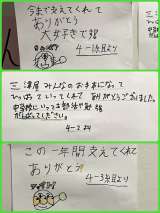 今まで支えてくれて
ありがとう
大好きです
4-1
より
三
みんなのお手本になって
ひっぱっていってくれて ありがとうございました。
中学校にいっても
がんばってください。
4-2
この一年間支えてくれて
ありがとう
4-3
より